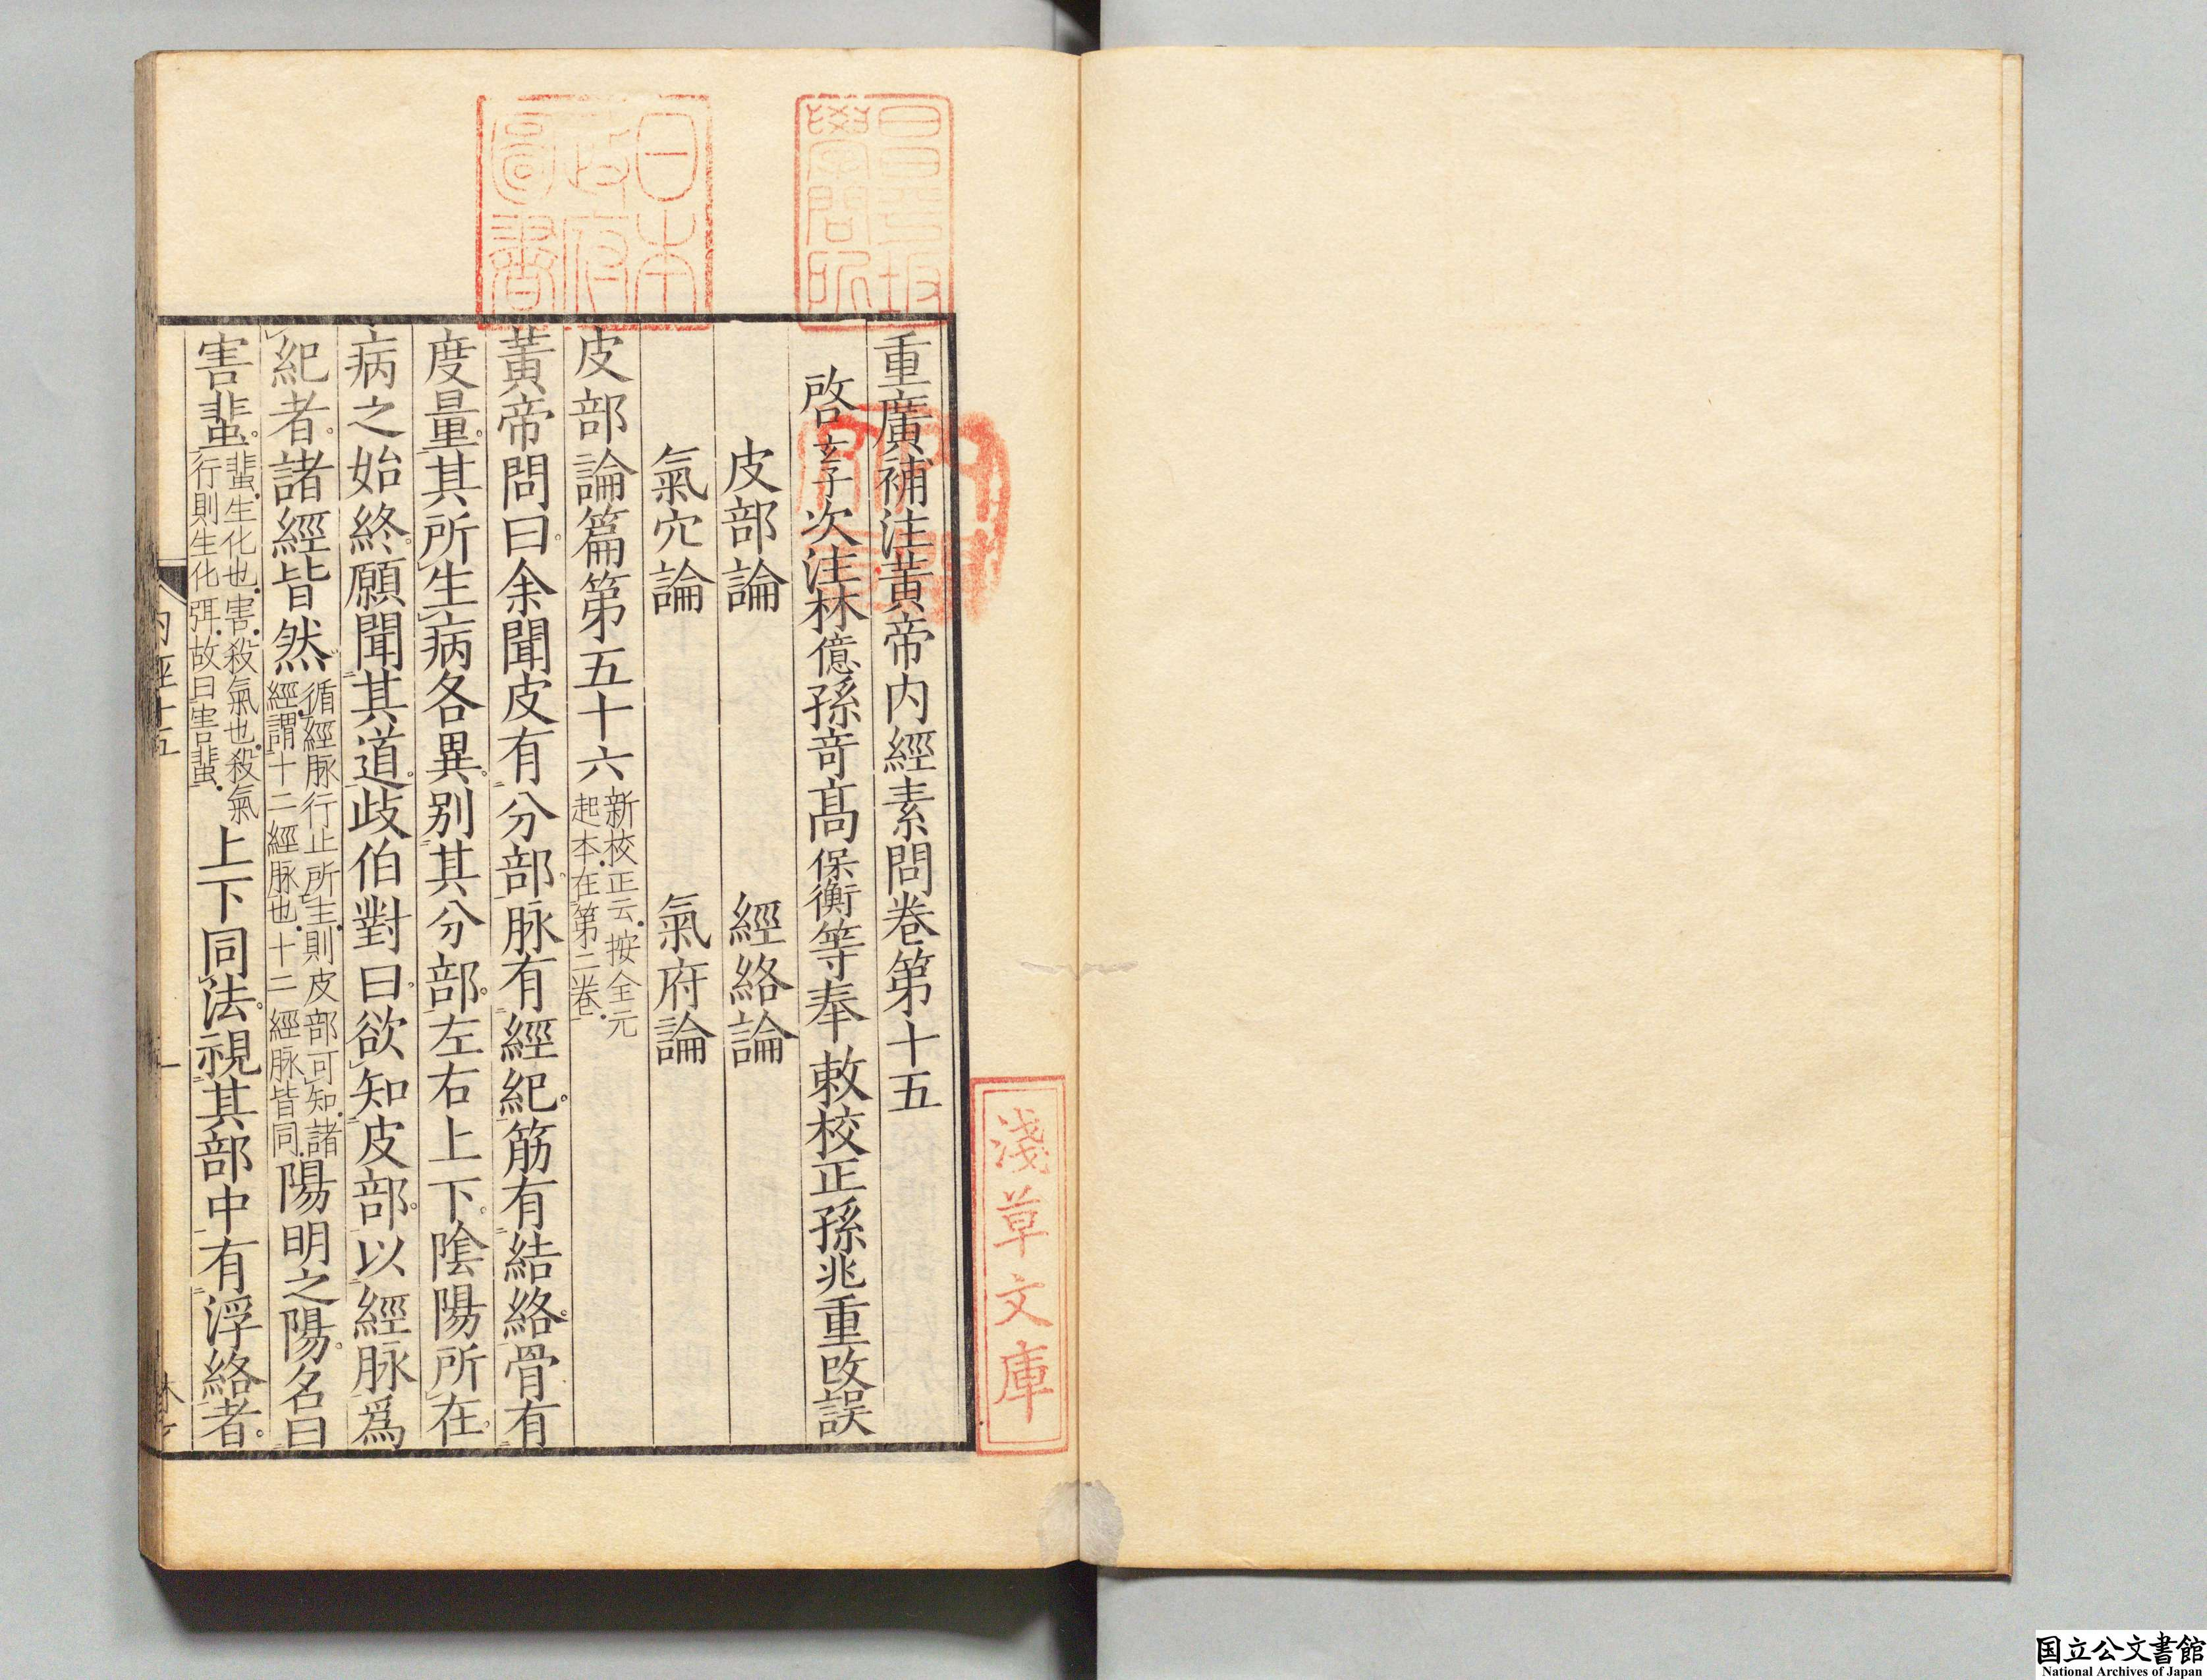 重廣補注黃帝内經素問卷第十五
啓玄子次注林億孫奇高保衡等奉敕校正孫兆重改誤
皮部論　經絡論
氣穴論　氣府論
皮部論篇第五十六新校正云按全元起本在第二卷
黃帝問曰余聞皮有分部脉有經紀筋有結絡骨有
度量其所生病各異别其分部左右上下陰陽所在
病之始終願聞其道歧伯對曰欲知皮部以經脉爲
紀者諸經皆然循經脉行止所生則皮部可知諸經謂十二經脉也十二經脉皆同陽明之陽名曰
害蜚蜚生化也害殺氣也殺氣行則生化弭故曰害蜚上下同法視其部中有浮絡者
内經十五
一
昌平坂學問所
日本政府圖書
淺草文庫
国立公文書館
National Archives of Japan